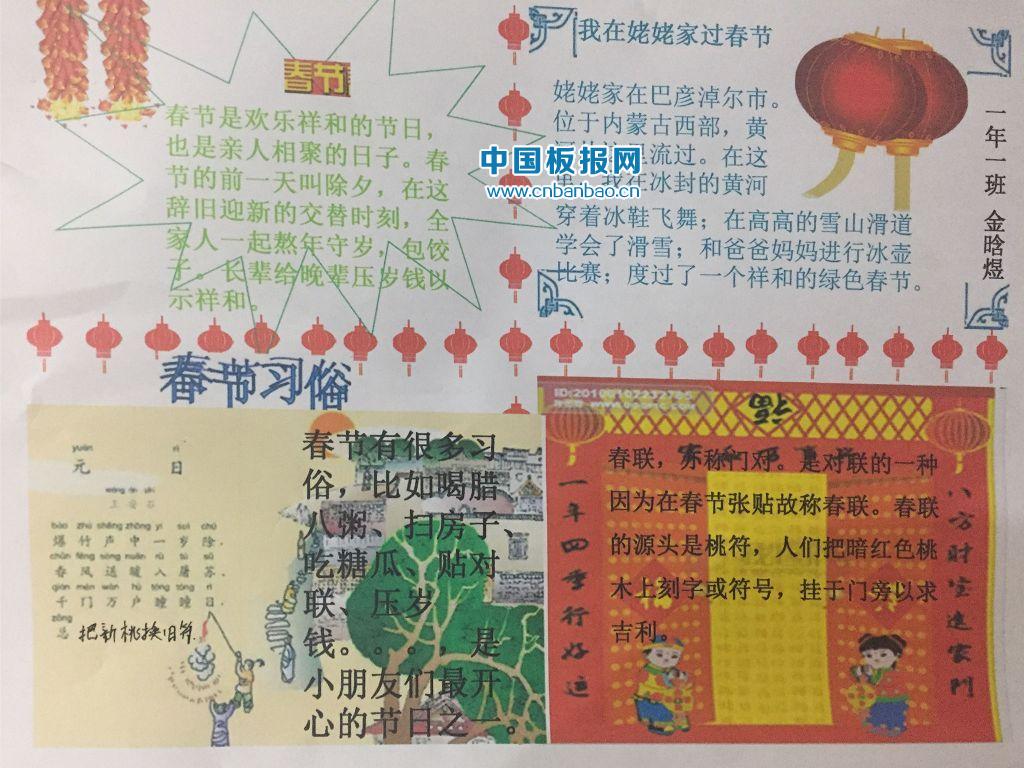 春节
春节是欢乐祥和的节日，
也是亲人相聚的日子。春
节的前一天叫除夕，在这
辞旧迎新的交替时刻，全
家人一起熬年守岁，包饺
子。长辈给晚辈压岁钱以
示祥和。
我在姥姥家过春节
姥姥家在巴彦淖尔市。
位于内蒙古西部，黄
流过。在这
在冰封的黄河
穿着冰鞋飞舞；在高高的雪山滑道
学会了滑雪；和爸爸妈妈进行冰壶
比赛；度过了一个祥和的绿色春节。
一年一班 金晗煜
中国板报网
www.cnbanbao.cn
春节习俗
yuán rì
元 日
王安石
bào zhú shēng zhōng yí suì chú
爆竹声中一岁除，
chūn fēng sòng nuǎn rù tú sū
春风送暖入屠苏。
qiān mén wàn hù tóng tóng rì
千门万户曈曈日，
zǒng
总把新桃换旧符
春节有很多习
俗，比如喝腊
八粥、扫房子、
吃糖瓜、贴对
联、压岁
钱。。。，是
小朋友们最开
心的节日之一。
福
春联，亦称门对。是对联的一种
因为在春节张贴故称春联。春联
的源头是桃符，人们把暗红色桃
木上刻字或符号，挂于门旁以求
吉利。
一年四季行好运
八方财宝进家门